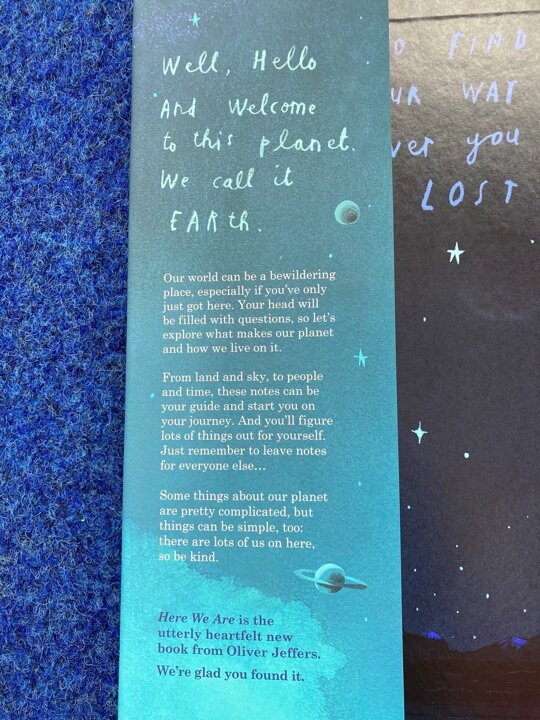 Well, Hello
And Welcome
to this planet.
We call it
EARth.
Our world can be a bewildering
place, especially if you've only
just got here. Your head will
be filled with questions, so let's
explore what makes our planet
and how we live on it.
From land and sky, to people
and time, these notes can be
your guide and start you on
your journey. And you'll figure
lots of things out for yourself.
Just remember to leave notes
for everyone else...
Some things about our planet
are pretty complicated, but
things can be simple, too:
there are lots of us on here,
so be kind.
Here We Are is the
utterly heartfelt new
book from Oliver Jeffers.
We're glad you found it.
FIND
WAY
you
LOST